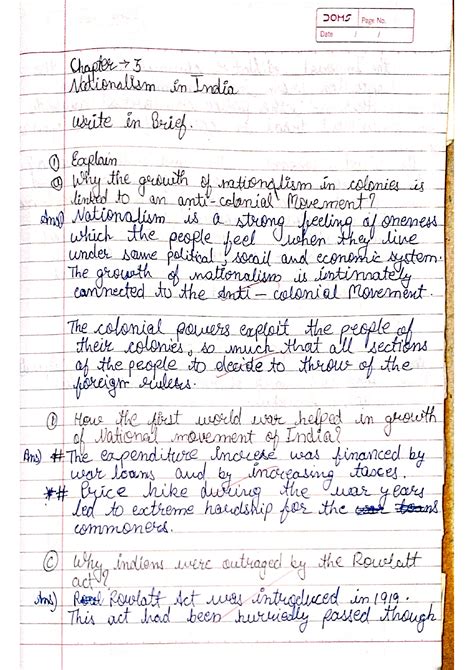 DOMS Page No.
Date / /
Chapter → 3
Nationalism in India
Write in Brief.
① Explain
ⓐ Why the growth of nationalism in colonies is
linked to an anti-colonial Movement?
Ans) Nationalism is a strong feeling of oneness
which the people feel when they live
under same political, socail and economic system.
The growth of nationalism is intimately
connected to the Anti - colonial Movement.
The colonial powers exploit the people of
their colonies, so much that all sections
of the people to decide to throw of the
foreign rulers.
ⓑ How the first world war helped in growth
of National movement of India?
Ans) # The expenditure increse was financed by
war loans and by increasing taxes.
# Price hike during the war years
led to extreme hardship for the
commoners.
ⓒ Why indians were outraged by the Rowlatt
act?
Ans) Rowlatt Act was introduced in 1919.
This act had been hurriedly passed though